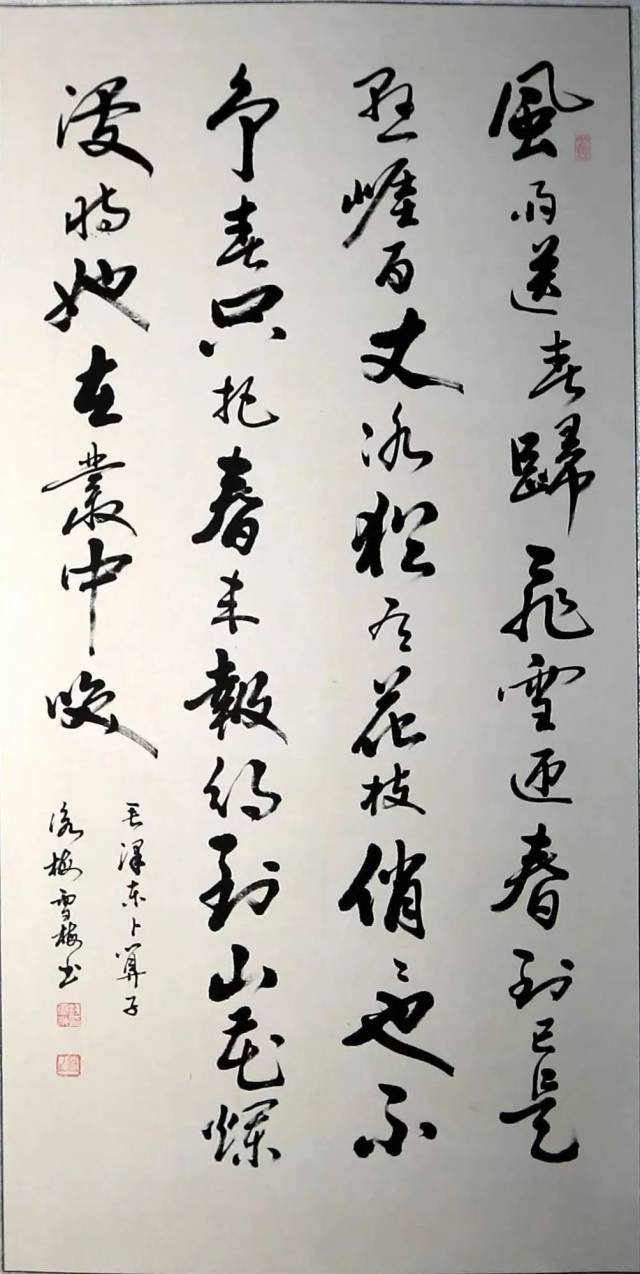 風雨送春歸飛雪迎春到已是
懸崖百丈冰猶有花枝俏〻也不
争春只把春来報待到山花爛
漫時她在叢中咲
毛澤东卜算子
咏梅雪梅书